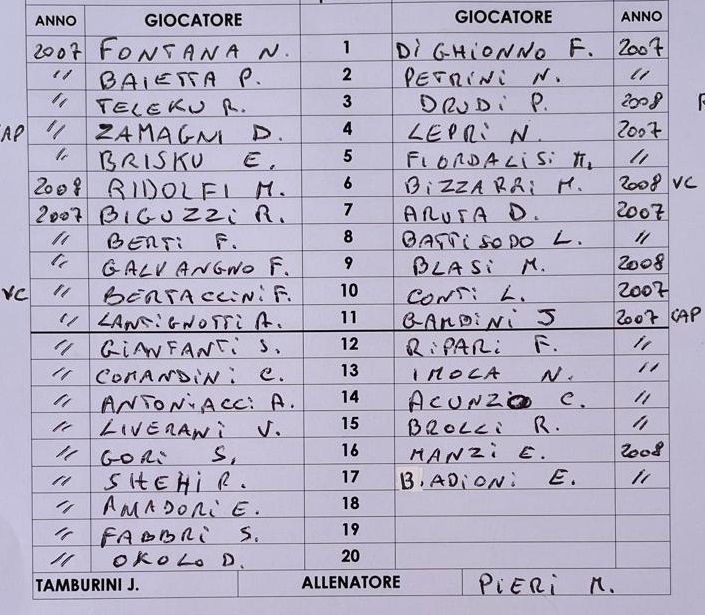 ANNO GIOCATORE GIOCATORE ANNO
2007 FONTANA N. 1 Di GHIONNO F. 2007
" BAIETTA P. 2 PETRINI N. "
" TELEKU R. 3 DRUDI P. 2008
AP " ZAMAGNI D. 4 LEPRI N. 2007
" BRISKU E. 5 FIORDALISI M. "
2008 RIDOLFI M. 6 BIZZARRI M. 2008 VC
2007 BIGUZZI R. 7 ARUTA D. 2007
" BERTI F. 8 BATTISODO L. "
" GALVANGNO F. 9 BLASI M. 2008
VC " BERTACCINI F. 10 CONTI L. 2007
" LANTIGNOTTI A. 11 BARDINI J 2007 CAP
" GIANFANTI S. 12 RIPARI F. "
" COMANDINI C. 13 IMOLA N. "
" ANTONIACCI A. 14 ACUNZO C. "
" LIVERANI V. 15 BROLLI R. "
" GORI S. 16 MANZI E. 2008
" SHEHI R. 17 BADIONI E. "
" AMADORI E. 18
" FABBRI S. 19
" OKOLO D. 20
TAMBURINI J. ALLENATORE PIERI M.